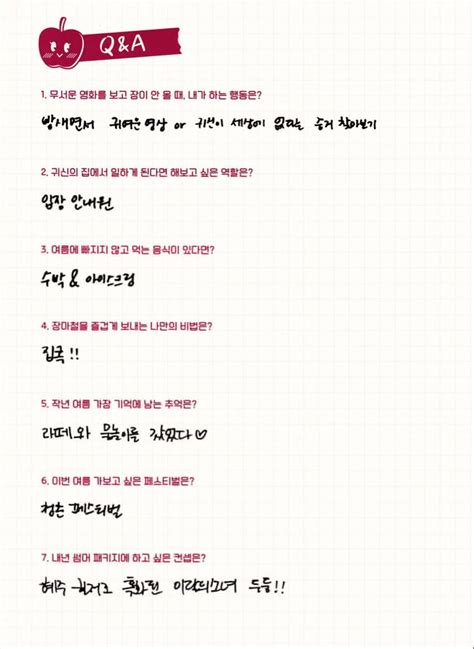 Q&A
1. 무서운 영화를 보고 잠이 안 올 때, 내가 하는 행동은?
밤새면서 귀여운 영상 or 귀신이 세상에 없다는 증거 찾아보기
2. 귀신의 집에서 일하게 된다면 해보고 싶은 역할은?
입장 안내원
3. 여름에 빠지지 않고 먹는 음식이 있다면?
수박 & 아이스크림
4. 장마철을 즐겁게 보내는 나만의 비법은?
집콕!!
5. 작년 여름 가장 기억에 남는 추억은?
라떼와 물놀이를 갔었다♡
6. 이번 여름 가보고 싶은 페스티벌은?
청춘 페스티벌
7. 내년 썸머 패키지에 하고 싶은 컨셉은?
혜주 특화된 이달의소녀 두둥!!